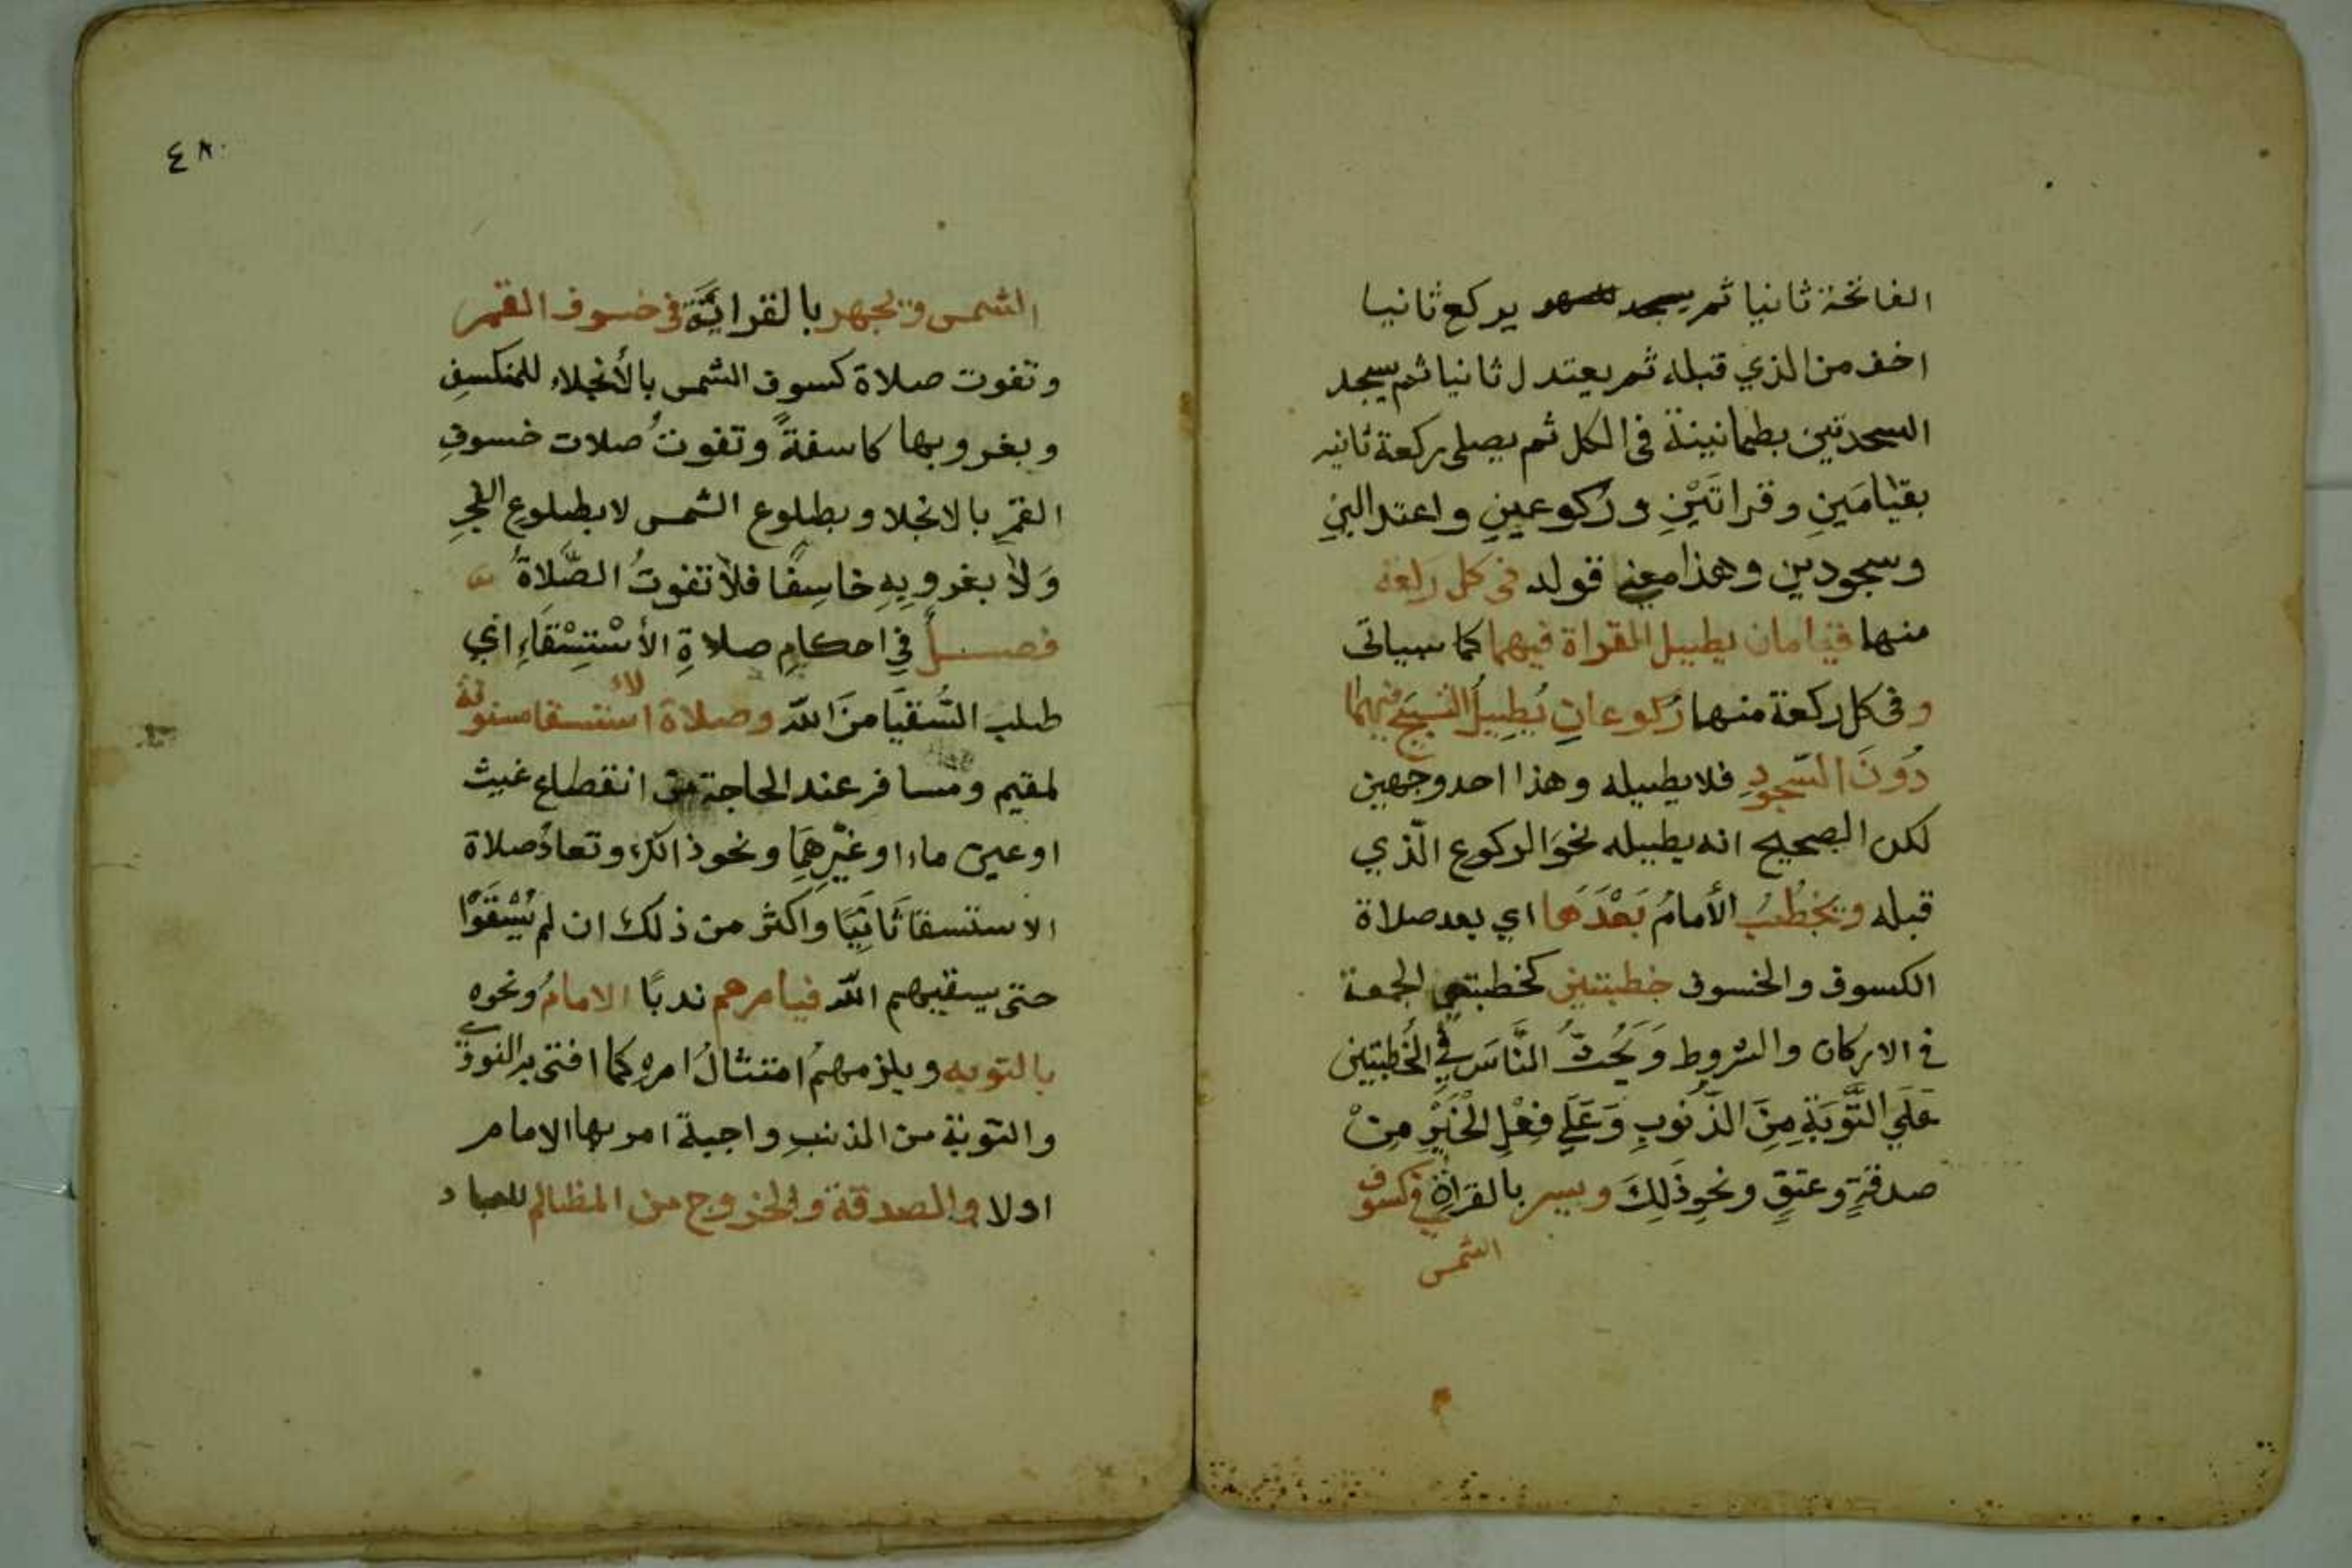 الفاتحة ثانيا ثم يسجد للسهو يركع ثانيا
اخف من الذي قبله ثم يعتدل ثانيا ثم يسجد
السجدتين بطمانينة في الكل ثم يصلى ركعة ثانيه
بقيامَينِ وقراتَيْنِ وركوعينِ واعتدالينِ
وسجودين وهذا معنى قوله في كل ركعة
منها قيامان يطيل القراة فيهما كما سياتى
وفى كل ركعة منها ركوعانِ يُطِيلُ التسبيحَ فيهما
دُونَ السّجودِ فلا يطيله وهذا احد وجهين
لكن الصحيح انه يطيله نحوَ الركوع الّذي
قبله ويخطُبُ الأمامُ بَعْدَهَا اي بعد صلاة
الكسوف والخسوف خطبتين كخطبتي الجمعة
في الاركان والشروط وَيَحُثُّ النَّاسَ فِي الخُطبتين
عَلَي التَّوْبَةِ مِنَ الذّنُوبِ وَعَلَي فِعْلِ الْخَيْرِ مِنْ
صدقةٍ وعتقٍ ونحوِ ذَلِكَ ويسر بالقراةِ في كسوف
الشمس
٤٨
الشمس ويجهر بالقرايَةَ في خسوف القمر
وتفوت صلاة كسوف الشمس بالأنجلاء للمنكسفِ
وبغروبها كاسفةً وتفوتُ صلات خسوفِ
القمَرِ بالانجلا وبطلوع الشمس لا بطلوعِ الفجرِ
وَلَا بغروبِهِ خاسِفًا فلا تفوتُ الصَّلَاةُ
فصلٌ فِي احكامِ صلاةِ الأسْتِسْقَاءِ اي
طلب السُّقيَا منَ اللّه وصلاة الاستسقا مسنونة
لمقيم ومسافر عند الحاجة من انقطاع غيث
او عين ماء او غَيْرِهِمَا ونحو ذالك وتعادُ صلاة
الاستسقا ثَانِيًا واكثر من ذلك ان لم يُسْقَوْا
حتى يسقيهم اللّه فيامرهم ندبًا الامامُ ونحوه
بالتوبه ويلزمهمُ امتثالُ امرهِ كما افتى به النووي
والتوبة من المذنبِ واجبة امر بها الامام
اولا والصدقة والخروج من المظالم للعباد